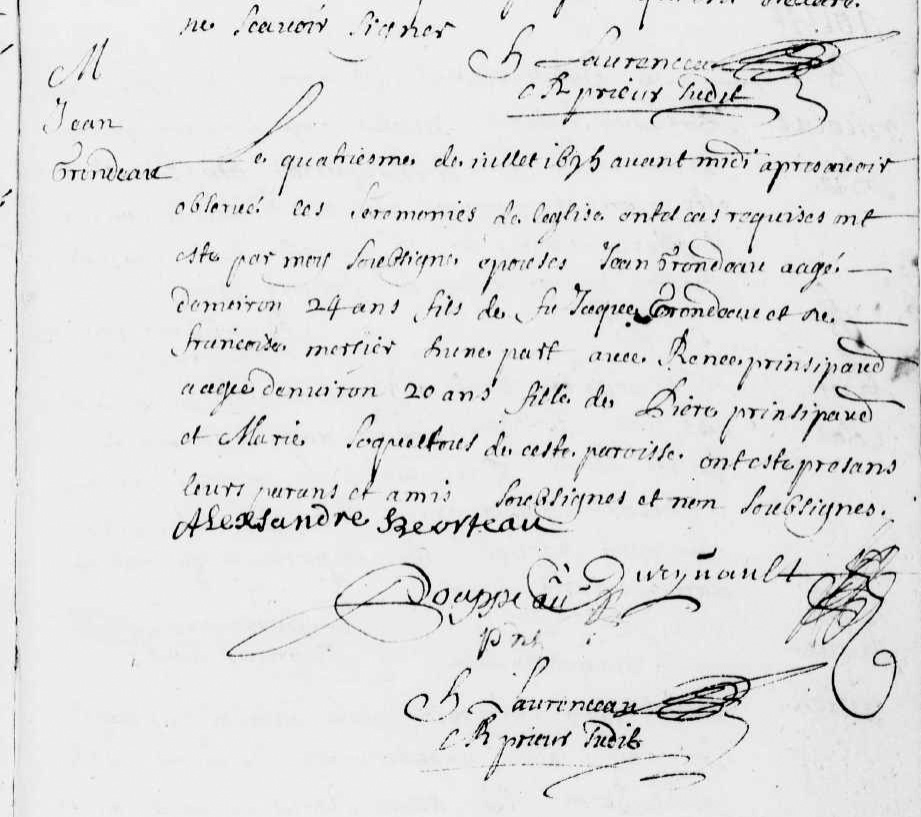 ne scavoir signer
h Laurenceau
C R prieur Susdit
M
Jean
Grondeau
Le quatriesme de iullet 1695 avant midi apres avoir
observé les seremonies de leglise en tel cas requises ont
este par moy soubsigne epousés Jean Grondeau aagé
denviron 24 ans fils de fu Jaques Grondeau et de
francoise mersier dune part avec Renee prinsipaud
aagee denviron 20 ans fille de Piere prinsipaud
et Marie Soquet tous de ceste paroisse ont este presans
leurs parans et amis soubsignes et non soubsignes.
Alexsandre
h Laurenceau
C R prieur Susdit